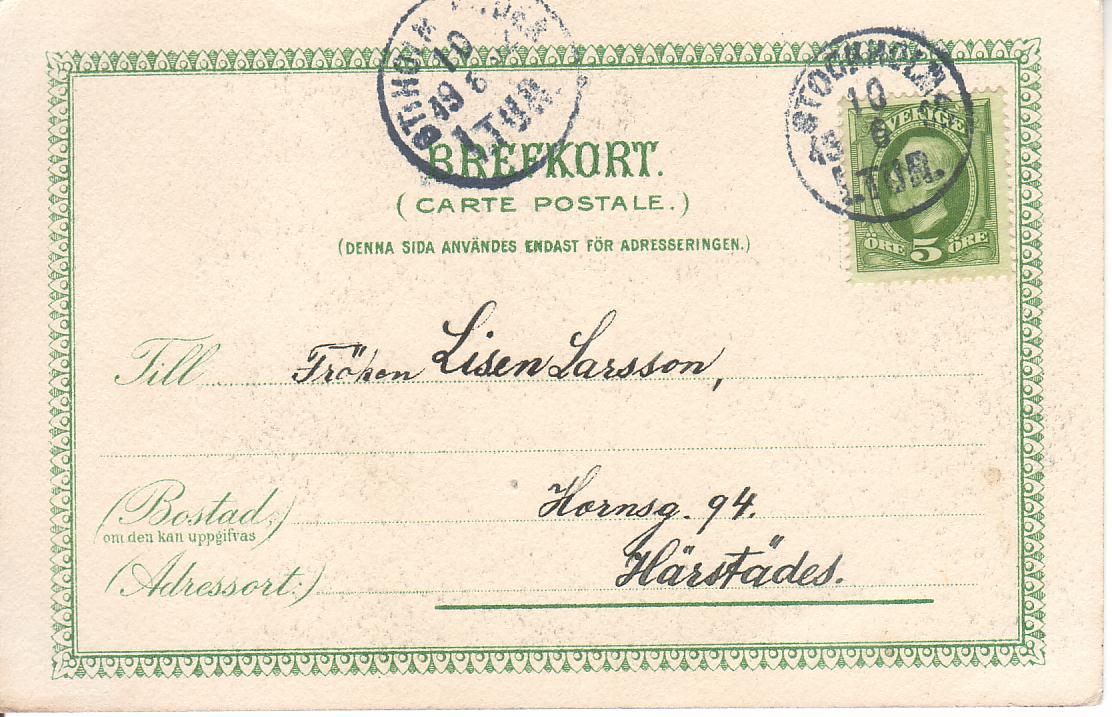 STOCKHOLM
10
6
1.TUR.
10
1.TUR.
SVERIGE
ÖRE 5 ÖRE
BREFKORT.
(CARTE POSTALE.)
(DENNA SIDA ANVÄNDES ENDAST FÖR ADRESSERINGEN.)
Till Fröken Lisen Larsson,
(Bostad,) Hornsg. 94.
om den kan uppgifvas
(Adressort.) Härstädes.